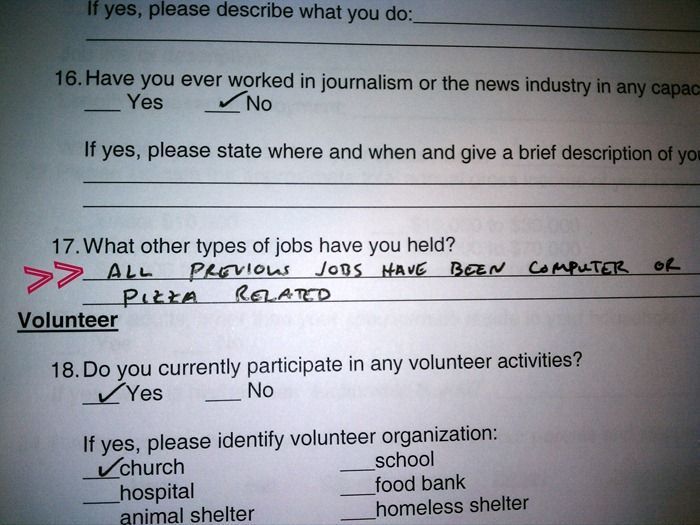 If yes, please describe what you do:
16. Have you ever worked in journalism or the news industry in any capac
Yes ✓ No
If yes, please state where and when and give a brief description of yo
17. What other types of jobs have you held?
>> ALL PREVIOUS JOBS HAVE BEEN COMPUTER OR
PIZZA RELATED
Volunteer
18. Do you currently participate in any volunteer activities?
✓ Yes No
If yes, please identify volunteer organization:
✓ church school
hospital food bank
animal shelter homeless shelter